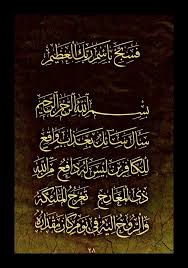 فسبح باسم ربك العظيم
بسم الله الرحمن الرحيم
سأل سائل بعذاب واقع
للكافرين ليس له دافع من الله
ذي المعارج تعرج الملئكة
والروح إليه في يوم كان مقداره
٢٨